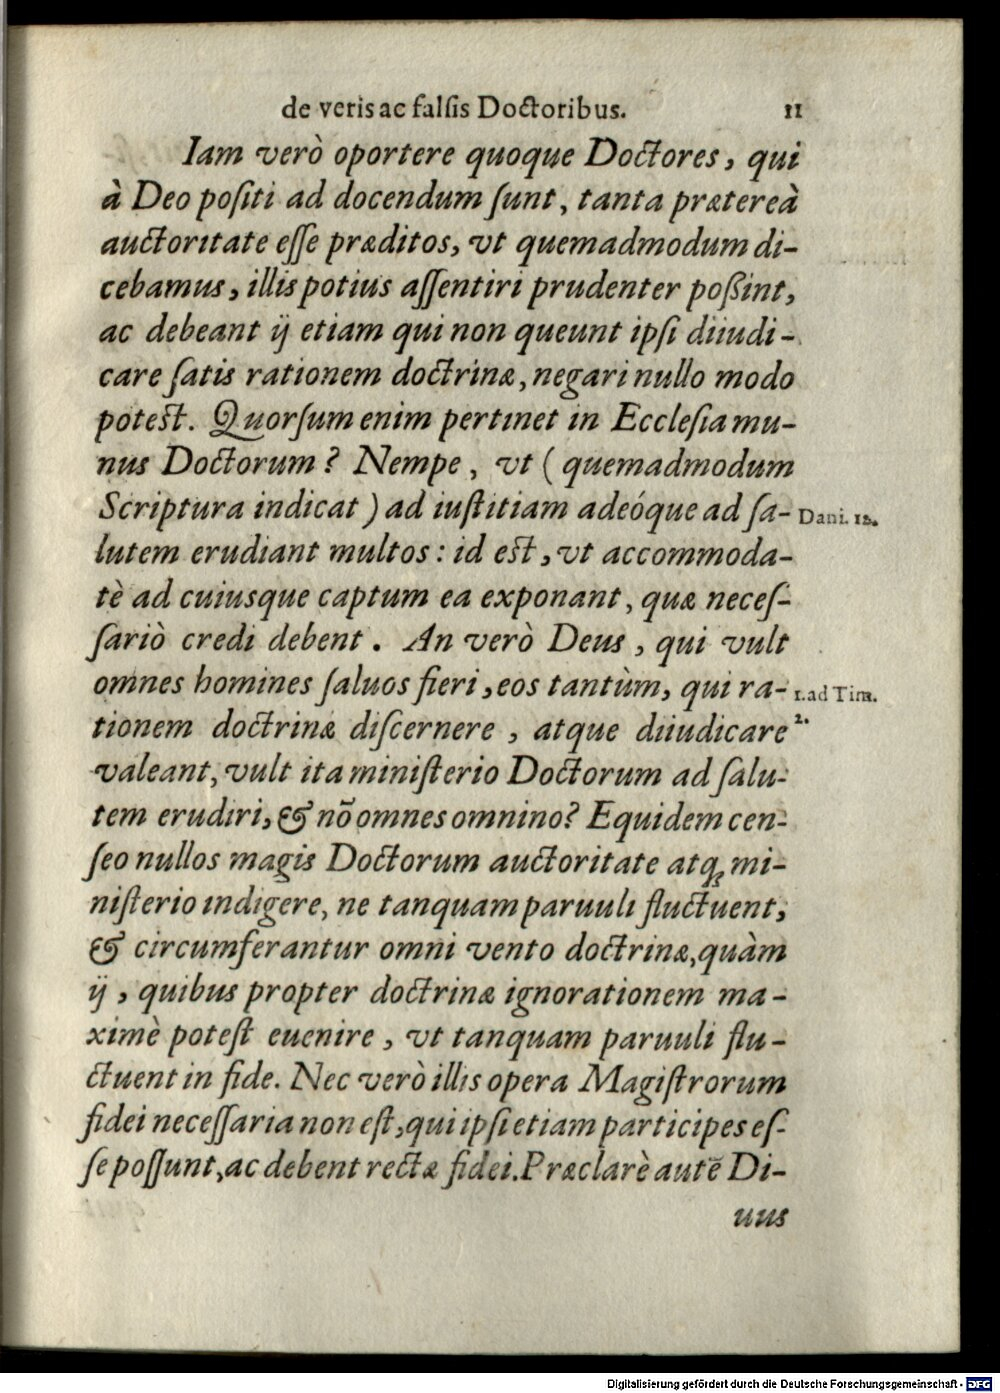 de veris ac falsis Doctoribus. 11
Iam verò oportere quoque Doctores, qui
à Deo positi ad docendum sunt, tanta prætereà
auctoritate esse præditos, vt quemadmodum di-
cebamus, illis potius assentiri prudenter poßint,
ac debeant ij etiam qui non queunt ipsi diiudi-
care satis rationem doctrinæ, negari nullo modo
potest. Quorsum enim pertinet in Ecclesia mu-
nus Doctorum? Nempe, vt (quemadmodum
Scriptura indicat) ad iustitiam adeóque ad sa- Dani. 12.
lutem erudiant multos: id est, vt accommoda-
tè ad cuiusque captum ea exponant, quæ neces-
sariò credi debent. An verò Deus, qui vult
omnes homines saluos fieri, eos tantùm, qui ra- 1. ad Tim.
tionem doctrinæ discernere, atque diiudicare 2.
valeant, vult ita ministerio Doctorum ad salu-
tem erudiri, & nō omnes omnino? Equidem cen-
seo nullos magis Doctorum auctoritate atq; mi-
nisterio indigere, ne tanquam paruuli fluctuent,
& circumferantur omni vento doctrinæ, quàm
ij, quibus propter doctrinæ ignorationem ma-
ximè potest euenire, vt tanquam paruuli flu-
ctuent in fide. Nec verò illis opera Magistrorum
fidei necessaria non est, qui ipsi etiam participes es-
se possunt, ac debent rectæ fidei. Præclarè autē Di-
uus
Digitalisierung gefördert durch die Deutsche Forschungsgemeinschaft - DFG